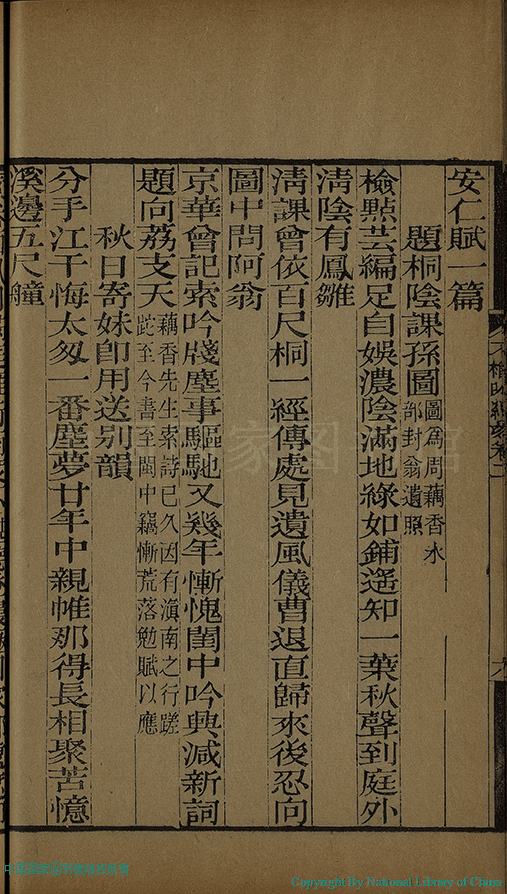 安仁賦一篇
題桐陰課孫圖圖為周藕香水
部封翁遺照
檢點芸編足自娛濃陰滿地綠如鋪遥知一葉秋聲到庭外
淸陰有鳳雛
淸課曾依百尺桐一經傳處見遺風儀曹退直歸來後忍向
圖中問阿翁
京華曾記索吟牋塵事驅馳又幾年慚愧閨中吟興減新詞
題向荔支天藕香先生索詩已久因有滇南之行蹉
跎至今書至閩中竊慚荒落勉賦以應
秋日寄妹卽用送别韻
分手江干悔太匆一番塵夢廿年中親帷那得長相聚苦憶
溪邊五尺艟
Copyright By National Library of China